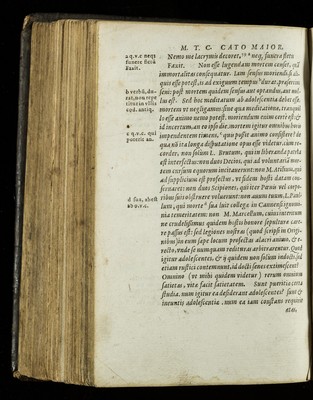 M. T. C. CATO MAIOR.
Nemo me lacrymis decoret, neq; funera fletu
Faxit. Non esse lugendam mortem censet, quã
immortalitas consequatur. Iam sensus moriendi si ali-
quis esse potest, is ad exiguum tempus durat, præsertim
seni: post mortem quidem sensus aut optandus, aut nul-
lus est. Sed hoc meditatum ab adolescentia debet esse,
mortem vt negligamus sine qua meditatione, tranquil-
lo esse animo nemo potest. moriendum enim certè est: &
id incertum, an eo ipso die. mortem igitur omnibus horis
impendentem timens, quî posse animo consistere? de
qua nõ ita longa disputatione opus esse videtur, cùm re-
corder, non solùm L. Brutum, qui in liberanda patria
est interfectus: non duos Decios, qui ad voluntariã mor-
tem cursum equorum incitauerunt: non M. Atilium, qui
ad supplicium est profectus, vt fidem hosti datam con-
seruaret: non duos Scipiones, qui iter Pœnis vel corpo-
ribus suis obstruere voluerunt: non auum tuum L. Pau-
lum, qui morte sua luit collegæ in Cannensi ignomi-
nia temeritatem: non M. Marcellum, cuius interitum
ne crudelissimus quidem hostis honore sepulturæ care-
re passus est: sed legiones nostras (quod scripsi in Origi-
nibus) in eum sæpe locum profectas alacri animo, & e-
recto, vnde se nunquam redituras arbitrarentur. Quod
igitur adolescentes, & ij quidem non solùm indocti, sed
etiam rustici contemnunt, id docti senes extimescent?
Omnino (vt mihi quidem videtur) rerum omnium
satietas, vitæ facit satietatem. Sunt pueritiæ certa
studia. num igitur ea desiderant adolescentes? sunt &
ineuntis adolescentiæ. num ea iam constans requirit
ætas,
a q.v.c neqʒ
funere fletũ
Faxit.
c q.v.c. qui
poterit an.